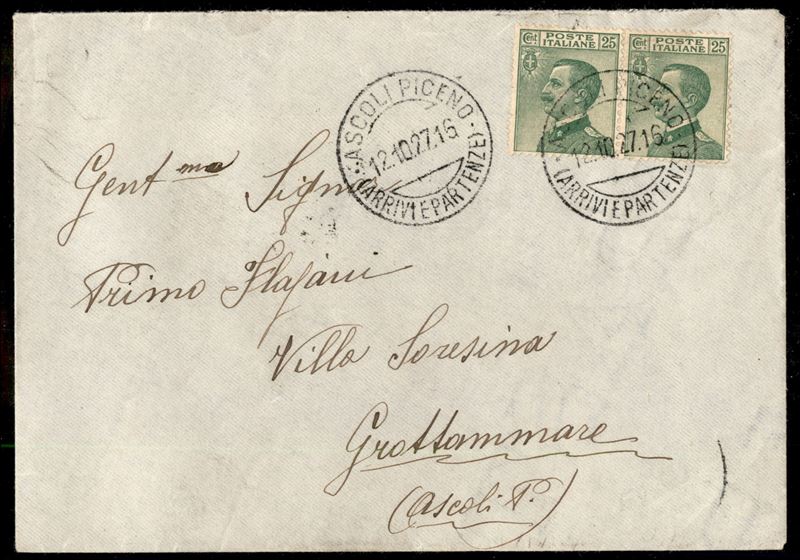 Cent POSTE ITALIANE 25
Cent POSTE ITALIANE 25
ASCOLI PICENO
12.10.27.16
(ARRIVI E PARTENZE)
ASCOLI PICENO
12.10.27.16
(ARRIVI E PARTENZE)
Gentma Sigra
Primo Flajani
Villa Soresina
Grottammare
(Ascoli P.)